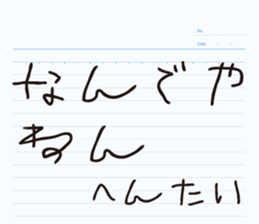 No.
Date ・ ・
なんでや
ねん
へんたい